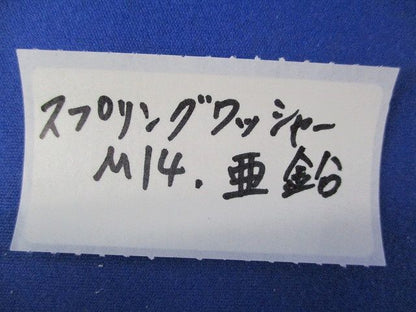 スプリングワッシャー
M14. 亜鉛